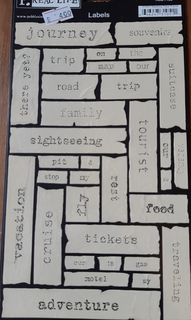 REAL LIFE
Labels
journey
souvenirs
there yet?
trip
on
the
map
our
suitcase
road
trip
family
sightseeing
tourist
pit
a
stop
my
rest
vacation
cruise
fly
food
tickets
traveling
our
is
gas
motel
my
adventure